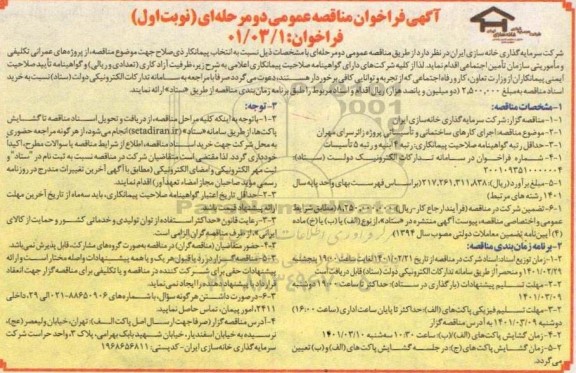 آگهی فراخوان مناقصه عمومی دو مرحله‌ای (نوبت اول)
فراخوان: ۰۱/۰۳/۱
شرکت سرمایه‌گذاری خانه‌سازی ایران در نظر دارد از طریق مناقصه عمومی دو مرحله‌ای با مشخصات ذیل نسبت به انتخاب پیمانکار ذی‌صلاح جهت موضوع مناقصه، از پروژه‌های عمرانی تکلیفی
و مأموریتی سازمان تأمین اجتماعی اقدام نماید. لذا از کلیه شرکت‌های دارای گواهینامه صلاحیت پیمانکاری اعلامی به شرح زیر، ظرفیت آزاد کاری (تعدادی و ریالی) و گواهینامه تأیید صلاحیت
ایمنی پیمانکاران از وزارت تعاون، کار و رفاه اجتماعی که از تجربه و توانایی کافی برخوردار هستند، دعوت می‌گردد صرفا با مراجعه به سامانه تدارکات الکترونیکی دولت (ستاد) نسبت به خرید
اسناد مناقصه به مبلغ ۲,۵۰۰,۰۰۰ (دو میلیون و پانصد هزار) ریال اقدام و اسناد مربوط را طبق برنامه زمان‌بندی مناقصه از طریق «ستاد» ارائه نمایند.
۱- مشخصات مناقصه:
۱-۱- مناقصه‌گزار: شرکت سرمایه‌گذاری خانه‌سازی ایران
۲-۱- موضوع مناقصه: اجرای کارهای ساختمانی و تأسیساتی پروژه زائرسرای مهران
۳-۱- حداقل رتبه گواهینامه صلاحیت پیمانکاری: رتبه ۲ ابنیه و رتبه ۵ تأسیسات
۴-۱- شماره فراخوان در سامانه تدارکات الکترونیک دولت (ستاد):
۲۰۰۱۰۹۳۵۱۰۰۰۰۰۴
۵-۱- مبلغ برآورد (ریال): ۲۱۷,۲۶۱,۳۱۱,۸۳۸ (براساس فهرست بهای واحد پایه سال
۱۴۰۱ رشته‌های مرتبط)
عمومی و اختصاصی مناقصه، پیوست آگهی منتشره در «ستاد»، از نوع (الف) یا (ب) یا (خ) ماده
(۴) آیین‌نامه تضمین معاملات دولتی مصوب سال ۱۳۹۴)
۲- برنامه زمان‌بندی مناقصه:
۱-۲- زمان توزیع اسناد: اسناد شرکت در مناقصه از تاریخ ۱۴۰۱/۰۲/۲۱ لغایت ساعت ۱۹:۰۰ پنجشنبه
۱۴۰۱/۰۲/۲۹ و منحصراً از طریق سامانه تدارکات الکترونیک دولت (ستاد) قابل دریافت است
۲-۲- مهلت تسلیم پیشنهادات (بارگذاری در ستاد): حداکثر تا ساعت ۱۹:۰۰ دوشنبه
۱۴۰۱/۰۳/۰۹
۳-۲- مهلت تسلیم فیزیکی پاکت‌های (الف): حداکثر تا پایان ساعت اداری (ساعت ۱۶:۰۰)
دوشنبه ۱۴۰۱/۰۳/۰۹ به آدرس مناقصه‌گزار
۴-۲- زمان گشایش پاکت‌های (الف) و (ب): ساعت ۱۰:۳۰ سه‌شنبه ۱۴۰۱/۰۳/۱۰
۵-۲- زمان گشایش پاکت‌های (ج): در جلسه گشایش پاکت‌های (الف) و (ب) تعیین
می‌گردد.
۳- توجه:
۱-۳- با توجه به اینکه کلیه مراحل مناقصه، از دریافت و تحویل اسناد مناقصه تا گشایش
پاکت‌ها، از طریق سامانه «ستاد» (setadiran.ir) انجام می‌شود، از هرگونه مراجعه حضوری
به محل شرکت جهت خرید اسناد مناقصه، اطلاع از شرایط مناقصه یا سوالات مطرح، اکیداً
خودداری گردد. لذا مقتضی است متقاضیان شرکت در مناقصه نسبت به ثبت نام در "ستاد" و
ثبت مهر الکترونیکی و امضای الکترونیکی (مطابق با آگهی آخرین تغییرات مندرج در روزنامه
رسمی مؤید صاحبان مجاز امضاء تعهدآور) اقدام نمایند.
۲-۳- حداقل تاریخ اعتبار گواهینامه صلاحیت پیمانکاری، باید سه ماه از تاریخ آخرین مهلت
ارائه پیشنهاد قیمت باشد.
۳-۳- رعایت قانون «حداکثر استفاده از توان تولیدی و خدماتی کشور و حمایت از کالای
ایرانی» از طرف مناقصه‌گران الزامی است.
۴-۳- حضور متقاضیان (مناقصه‌گران) در مناقصه به صورت گروه‌های مشارکت، قابل پذیرش نمی‌باشد.
۵-۳- مناقصه‌گزار در رد یا قبول هر یک و یا همه پیشنهادات واصله مختار است و ارائه
پیشنهادات حقی برای شرکت کننده در مناقصه و یا تکلیفی برای مناقصه‌گزار جهت انعقاد
قرارداد با پیشنهاددهنده را ایجاد نمی‌نماید.
۶-۳- در صورت داشتن هرگونه سؤال، با شماره‌های ۸۸۶۵۰۹۰۶-۰۲۱ الی ۳۹، داخلی
۲۴۱۱، امور پیمان، تماس حاصل نمایید.
۴- آدرس مناقصه‌گزار (صرفا جهت ارسال اصل پاکت الف): تهران، خیابان ولیعصر (عج)،
نرسیده به خیابان اسفندیار، خیابان شهید بابک بهرامی، پلاک ۳، واحد حراست شرکت
سرمایه‌گذاری خانه‌سازی ایران - کدپستی: ۱۹۶۸۶۵۶۸۱۱